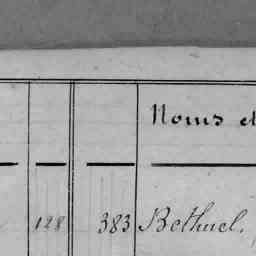 Noms et
128 383 Bethuel.